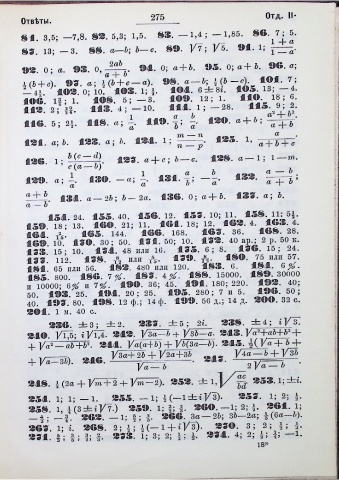 Отвѣты. 275 Отд. II.
81. 3,5; —7,8. 82. 5,3; 1,5. 83. —1,4; —1,85. 86. 7; 5.
87. 13; —3. 88. a—b; b—c. 89. √7; √5. 91. 1; (1+a)/(1—a).
92. 0; a. 93. 0, 2ab/(a+b). 94. 0; a+b. 95. 0; a+b. 96. a;
½(b+c). 97. a; ½(b+c—a). 98. a—b; ½(b—c). 101. 7;
102. 0; 10. 103. 1; 104. 6±8i. 105. 13; —4.
106. 108. 5; —3. 109. 12; 1. 110. 18; 6.
112. 2; 113. 4; —10. 114. 1; —28. 115. 9; 2.
116. 5; 2½. 118. a; 1/a. 119. a/b; b/a. 120. a+b; (a²+b²)/(a+b).
121. a; b. 122. a; b. 124. 1; (m—n)/(n—p). 125. 1, a/(a+b+c).
126. 1; b(c—d)/c(a—b). 127. a+c; b—c. 128. a—1; 1—m.
129. a; 1/a. 130. —a; 1/a. 131. a/b; —b/a. 132. (a—b)/(a+b);
(a+b)/(a—b). 134. a—2b; b—2a. 136. 0; a+b. 137. a; b.
154. 24. 155. 40. 156. 12. 157. 10; 11. 158. 11; 5½.
159. 18; 13. 160. 21; 11. 161. 18; 12. 162. 4. 163. 4.
164. 165. 144. 166. 168. 167. 36. 168. 28.
169. 10. 170. 30; 50. 171. 50; 10. 172. 40 ар.; 2 р. 50 к.
173. 15; 10. 174. 48 или 16. 175. 6; 8. 176. 15; 24.
177. 112. 178. или 179. 180. 75 или 57.
181. 65 или 56. 182. 480 или 120. 183. 6. 184. 6 %.
185. 800. 186. 7 %. 187. 4 %. 188. 15000. 189. 30000
и 10000; 6% и 7%. 190. 36; 45. 191. 180; 220. 192. 40;
50. 193. 25. 194. 20; 25. 195. 280; 7 и 5. 196. 50;
40. 197. 80. 198. 12 ф.; 14 ф. 199. 56 д.; 14 д. 200. 32 с.
201. 1 м. 40 с.
236. ±3; ±2. 237. ±5; 2i. 238. ±4; i√3.
240. √1,5; i√1,4. 242. √3a—b + √3b—a. 243. √a²+ab+b² +
+ √a²—ab+b². 244. √a(a+b) + √b(3a—b). 245. ½(√a+b +
+ √a—3b). 246. (√3a+2b + √2a+3b)/√a—b. 247. (√4a—b + √3b)/2√a—b.
248. ½(2a + √m+2 + √m—2). 252. ±1, √ac/bd 253. 1; ±i.
254. 1; 1; —1. 255. —1; ½(—1±i√3). 257. 1; 2; ½.
258. 1, ¼(3±i√7.) 259. 1; 260. —1; 2; ½. 261. 1;
262. —1; 266. 3a—2b; 3b—2a; ½(6a—b).
267. 1; i. 268. 2; ½; ½(—1+i√3). 270. 3; 2;
271. 273. 1; 3; 2; 274. 4; 2; —1.
18*